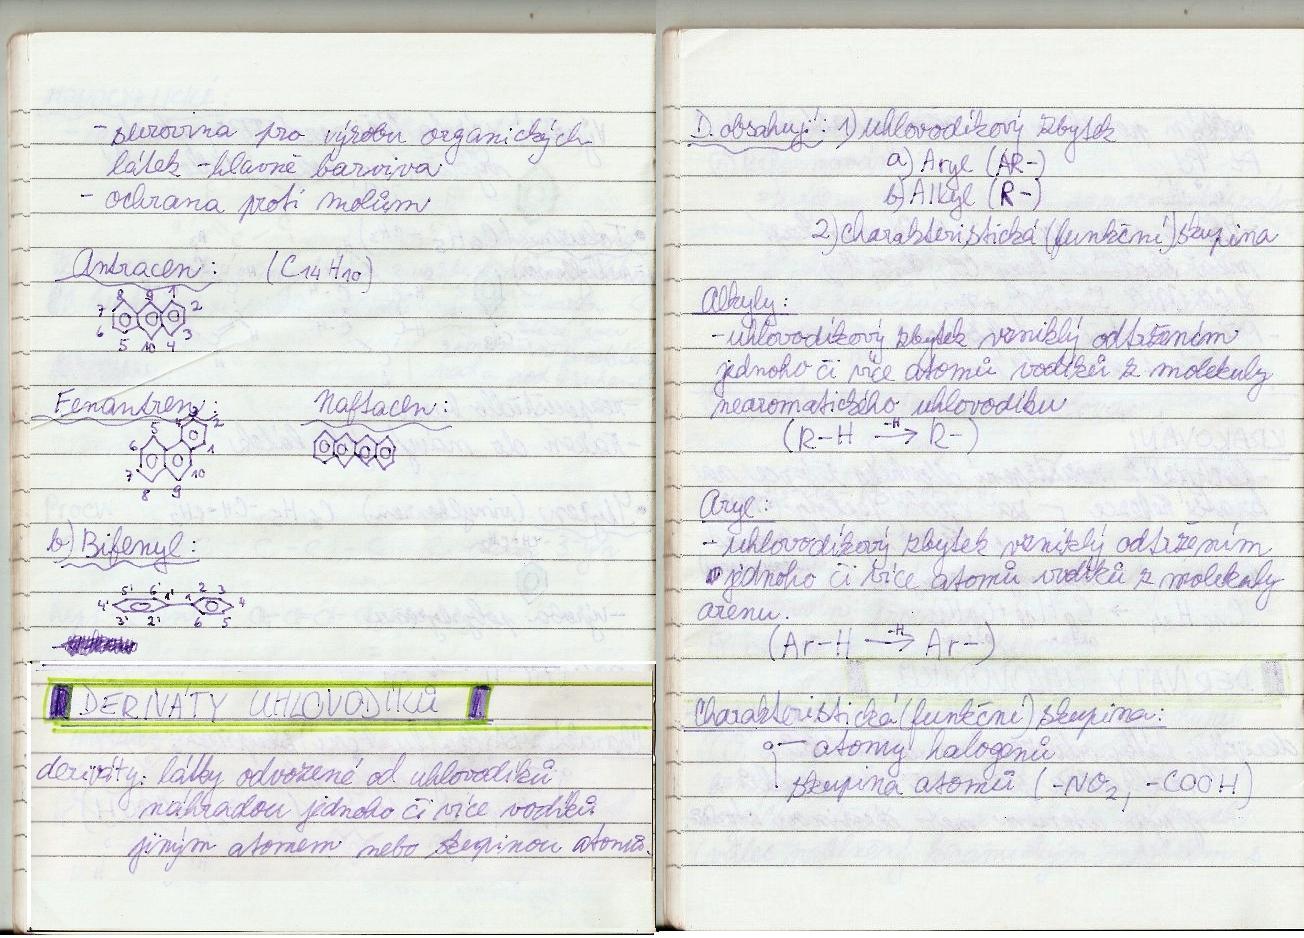 - surovina pro výrobu organických
látek - hlavně barviva
- ochrana proti molům
Antracen: (C14H10)
8 9 1
7 2
6 3
5 10 4
Fenantren: Naftacen:
3
4 2
5
6 1
7 10
8 9
b) Bifenyl:
5' 6' 1' 1 2 3
4' 4
3' 2' 6 5
DERIVÁTY UHLOVODÍKŮ
deriváty: látky odvozené od uhlovodíků
náhradou jednoho či více vodíků
jiným atomem nebo skupinou atomů.
D. obsahují: 1) uhlovodíkový zbytek
a) Aryl (AR-)
b) Alkyl (R-)
2) charakteristická (funkční) skupina
Alkyly:
- uhlovodíkový zbytek vzniklý odtržením
jednoho či více atomů vodíků z molekuly
nearomatického uhlovodíku
(R-H -H→ R-)
Aryl:
- uhlovodíkový zbytek vzniklý odtržením
jednoho či více atomů vodíků z molekuly
arenu.
(Ar-H -H→ Ar-)
Charakteristická (funkční) skupina:
- atomy halogenů
skupina atomů (-NO2, -COOH)